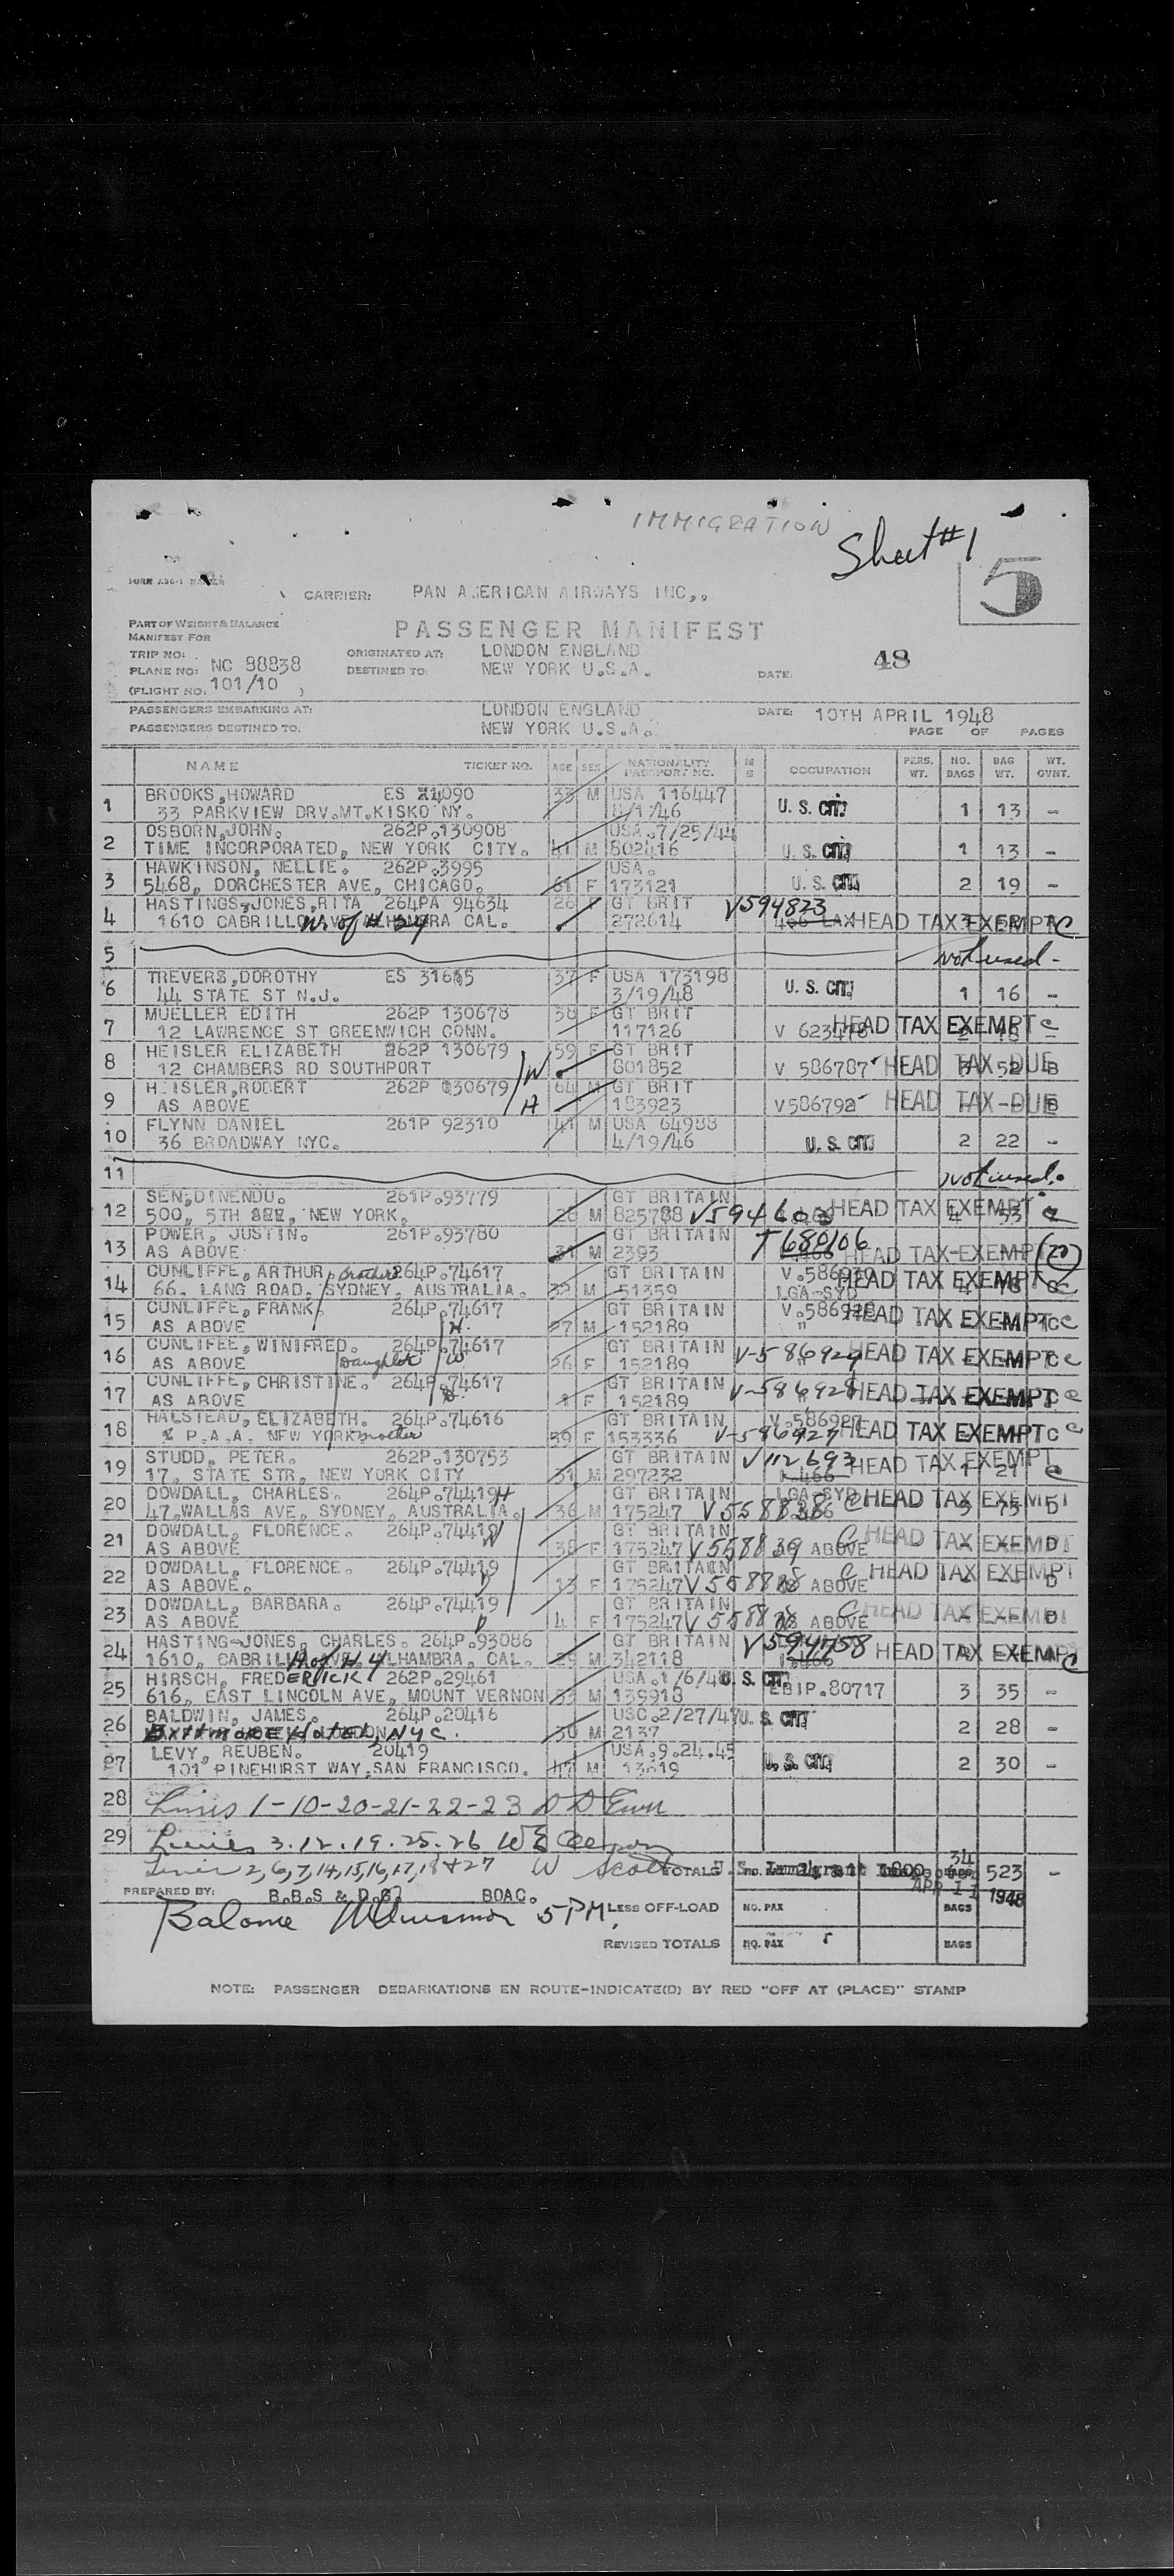 IMMIGRATION
Sheet #1
5
CARRIER: PAN AMERICAN AIRWAYS INC,.
PART OF WEIGHT & BALANCE
MANIFEST FOR
PASSENGER MANIFEST
TRIP NO:
ORIGINATED AT: LONDON ENGLAND
48
PLANE NO: NC 88838
DESTINED TO: NEW YORK U.S.A.
DATE:
(FLIGHT NO: 101/10 )
PASSENGERS EMBARKING AT: LONDON ENGLAND DATE: 10TH APRIL 1948
PASSENGERS DESTINED TO: NEW YORK U.S.A.
PAGE OF PAGES
NAME TICKET NO. AGE SEX NATIONALITY PASSPORT NO. M S OCCUPATION PERS. WT. NO. BAGS BAG WT. WT. OVNT.
1 BROOKS,HOWARD ES 14090 33 M USA 116447
33 PARKVIEW DRV.MT.KISKO NY. 8/1/46 U. S. CIT. 1 13 -
2 OSBORN,JOHN. 262P.130908 USA.7/25/44
TIME INCORPORATED, NEW YORK CITY. 41 M 802416 U. S. CIT. 1 13 -
3 HAWKINSON, NELLIE. 262P.3995 USA.
5468, DORCHESTER AVE, CHICAGO. 61 F 173121 U. S. CIT. 2 19 -
4 HASTINGS-JONES,RITA 264PA 94634 26 F GT BRIT V594823
1610 CABRILLO W. of # 24 CAL. 272614 HEAD TAX EXEMPT C
5 not used -
6 TREVERS,DOROTHY ES 31665 37 F USA 173198
44 STATE ST N.J. 3/19/48 U. S. CIT. 1 16 -
7 MUELLER EDITH 262P 130678 38 F GT BRIT
12 LAWRENCE ST GREENWICH CONN. 117126 V 623478 HEAD TAX EXEMPT C
8 HEISLER ELIZABETH 262P 130679 59 F GT BRIT
12 CHAMBERS RD SOUTHPORT W 801852 V 586787 HEAD TAX DUE 52 B
9 HEISLER,ROBERT 262P 130679 64 M GT BRIT
AS ABOVE H 183923 V586792 HEAD TAX-DUE B
10 FLYNN DANIEL 261P 92310 41 M USA 64988
36 BROADWAY NYC. 4/19/46 U. S. CIT. 2 22 -
11 not used.
12 SEN,DINENDU. 261P.93779 GT BRITAIN
500, 5TH AVE, NEW YORK. 28 M 825788 HEAD TAX EXEMPT C
13 POWER, JUSTIN. 261P.93780 GT BRITAIN T680106
AS ABOVE 31 M 2393 HEAD TAX-EXEMPT
14 CUNLIFFE, ARTHUR. brother 264P.74617 GT BRITAIN
66. LANG ROAD, SYDNEY, AUSTRALIA. 32 M 51359 LGA-SYD HEAD TAX EXEMPT C
15 CUNLIFFE, FRANK. 264P.74617 GT BRITAIN
AS ABOVE H. 27 M 152189 HEAD TAX EXEMPT C C
16 CUNLIFFE, WINIFRED. 264P.74617 GT BRITAIN
AS ABOVE Daughter W 26 F 152189 V-586929 HEAD TAX EXEMPT C C
17 CUNLIFFE, CHRISTINE. 264P.74617 GT BRITAIN
AS ABOVE D. 1 F 152189 V-586928 HEAD TAX EXEMPT C C
18 HALSTEAD, ELIZABETH. 264P.74616 GT BRITAIN V.586927
% P.A.A. NEW YORK mother 59 F 153336 V-586927 HEAD TAX EXEMPT C C
19 STUDD, PETER. 262P.130753 GT BRITAIN V112693
17, STATE STR, NEW YORK CITY 31 M 297232 HEAD TAX EXEMPT 1 21 C
20 DOWDALL, CHARLES. 264P.74419 H GT BRITAIN LGA-SYD
47,WALLAS AVE, SYDNEY, AUSTRALIA. 36 M 175247 V558838 C HEAD TAX EXEMPT 3 73 D
21 DOWDALL, FLORENCE. 264P.74419 GT BRITAIN
AS ABOVE W 38 F 175247 V558839 ABOVE C HEAD TAX EXEMPT D
22 DOWDALL, FLORENCE. 264P.74419 GT BRITAIN
AS ABOVE. D 13 F 175247 ABOVE C HEAD TAX EXEMPT D
23 DOWDALL, BARBARA. 264P.74419 GT BRITAIN
AS ABOVE D 4 F 175247 ABOVE C HEAD TAX EXEMPT D
24 HASTING-JONES, CHARLES. 264P.93086 GT BRITAIN V594758
1610, CABRILLO H of # 4 ALHAMBRA, CAL. 29 M 342118 HEAD TAX EXEMPT C
25 HIRSCH, FREDERICK 262P.29461 USA.1/6/48 U. S. CIT.
616, EAST LINCOLN AVE, MOUNT VERNON 33 M 139918 EBIP.80717 3 35 -
26 BALDWIN, JAMES. 264P.20416 USC.2/27/47 U. S. CIT.
Biltmore Hotel, NYC. 30 M 2137 2 28 -
27 LEVY, REUBEN. 20419 USA.9.24.45
101 PINEHURST WAY,SAN FRANCISCO. 47 M 13619 U. S. CIT. 2 30 -
28 Lines 1-10-20-21-22-23
29 Lines 3.12.19.25.26
Lines 2,6,7,14,15,16,17,18 & 27 W Scott TOTALS U.S. Immigrant 34 523 -
APR 11 1948
PREPARED BY: B.B.S & D.G? BOAC.
Balance 5 PM.
LESS OFF-LOAD NO. PAX BAGS
REVISED TOTALS NO. PAX BAGS
NOTE: PASSENGER DEBARKATIONS EN ROUTE-INDICATE(D) BY RED "OFF AT (PLACE)" STAMP